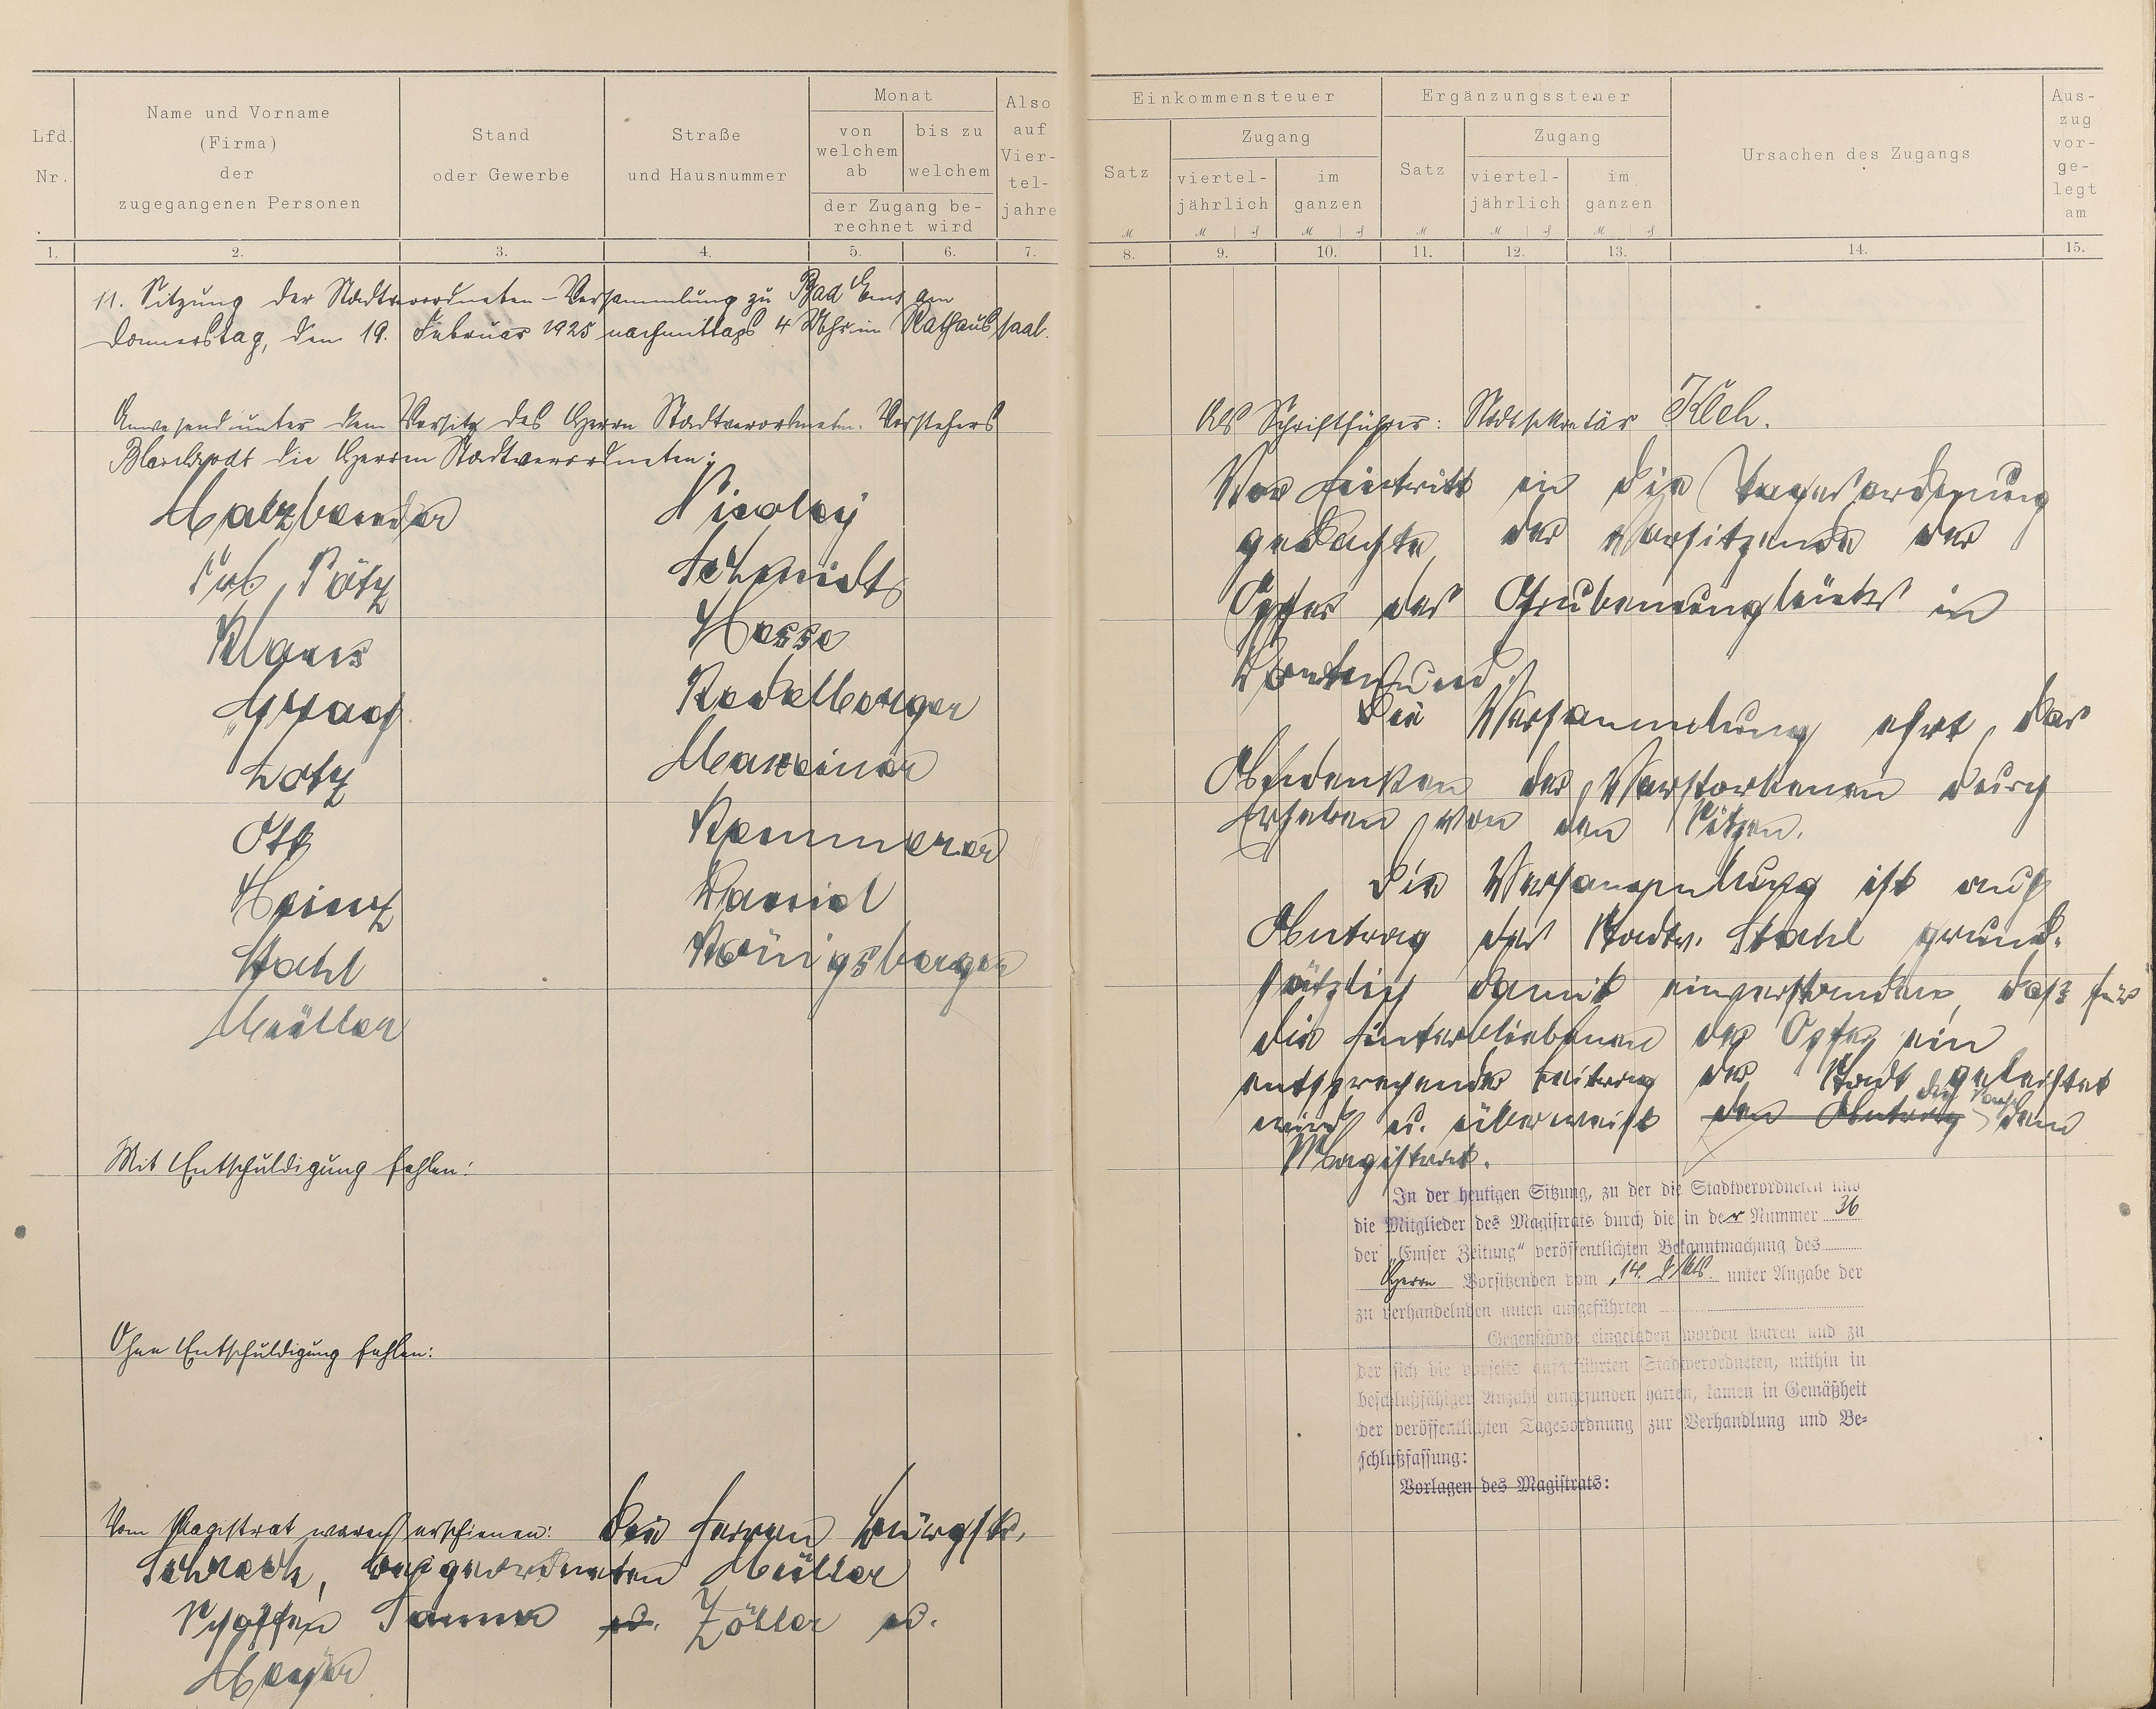 Lfd. Nr.
Name und Vorname
(Firma)
der
zugegangenen Personen
Stand
oder Gewerbe
Straße
und Hausnummer
Monat
von welchem ab
bis zu welchem
der Zugang be-
rechnet wird
Also auf Vier-tel-jahre
1. 2. 3. 4. 5. 6. 7.
11. Sitzung der Stadtverordneten-Versammlung zu Bad Ems am
Donnerstag, den 19. Februar 1925 nachmittags 4 Uhr im Rathaussaal.
Anwesend unter dem Vorsitz des Herrn Stadtverordneten-Vorstehers
die Herren Stadtverordneten:
Nicolay
Schmidt
Hasse
Klaus
Lotz
Ott
Kammerer
Heintz
Daniel
Stahl
Königsberger
Müller
Mit Entschuldigung fehlen:
Ohne Entschuldigung fehlen:
Vom Magistrat waren erschienen: die Herren Bürgstr.
Schreck, Beigeordneten Müller
Schöffen u. Zöller u.
Meyer
Einkommensteuer
Satz
Zugang
viertel-
jährlich
im
ganzen
Ergänzungssteuer
Satz
Zugang
viertel-
jährlich
im
ganzen
Ursachen des Zugangs
Aus-
zug
vor-
ge-
legt
am
8. 9. 10. 11. 12. 13. 14. 15.
Als Schriftführer: Stadtsekretär
Vor Eintritt in die Tagesordnung
gedachte der Vorsitzende der
Opfer des Grubenunglücks in
Dortmund.
Die Versammlung ehrt das
Andenken der Verstorbenen durch
Erheben von den Sitzen.
Die Versammlung ist auf
Antrag des Stadtv. Stahl grund-
sätzlich damit einverstanden, daß für
die Hinterbliebenen der Opfer ein
entsprechender Beitrag der Stadt geleistet
wird u. überweist den Antrag die dem
Magistrat.
In der heutigen Sitzung, zu der die Stadtverordneten und
die Mitglieder des Magistrats durch die in der Nummer 36
der „Emser Zeitung“ veröffentlichten Bekanntmachung des
Herrn Vorsitzenden vom 14. unter Angabe der
zu verhandelnden unten aufgeführten
Gegenstände eingeladen worden waren und zu
der sich die vorseits aufgeführten Stadtverordneten, mithin in
beschlußfähiger Anzahl eingefunden hatten, kamen in Gemäßheit
der veröffentlichten Tagesordnung zur Verhandlung und Be-
schlußfassung:
Vorlagen des Magistrats: